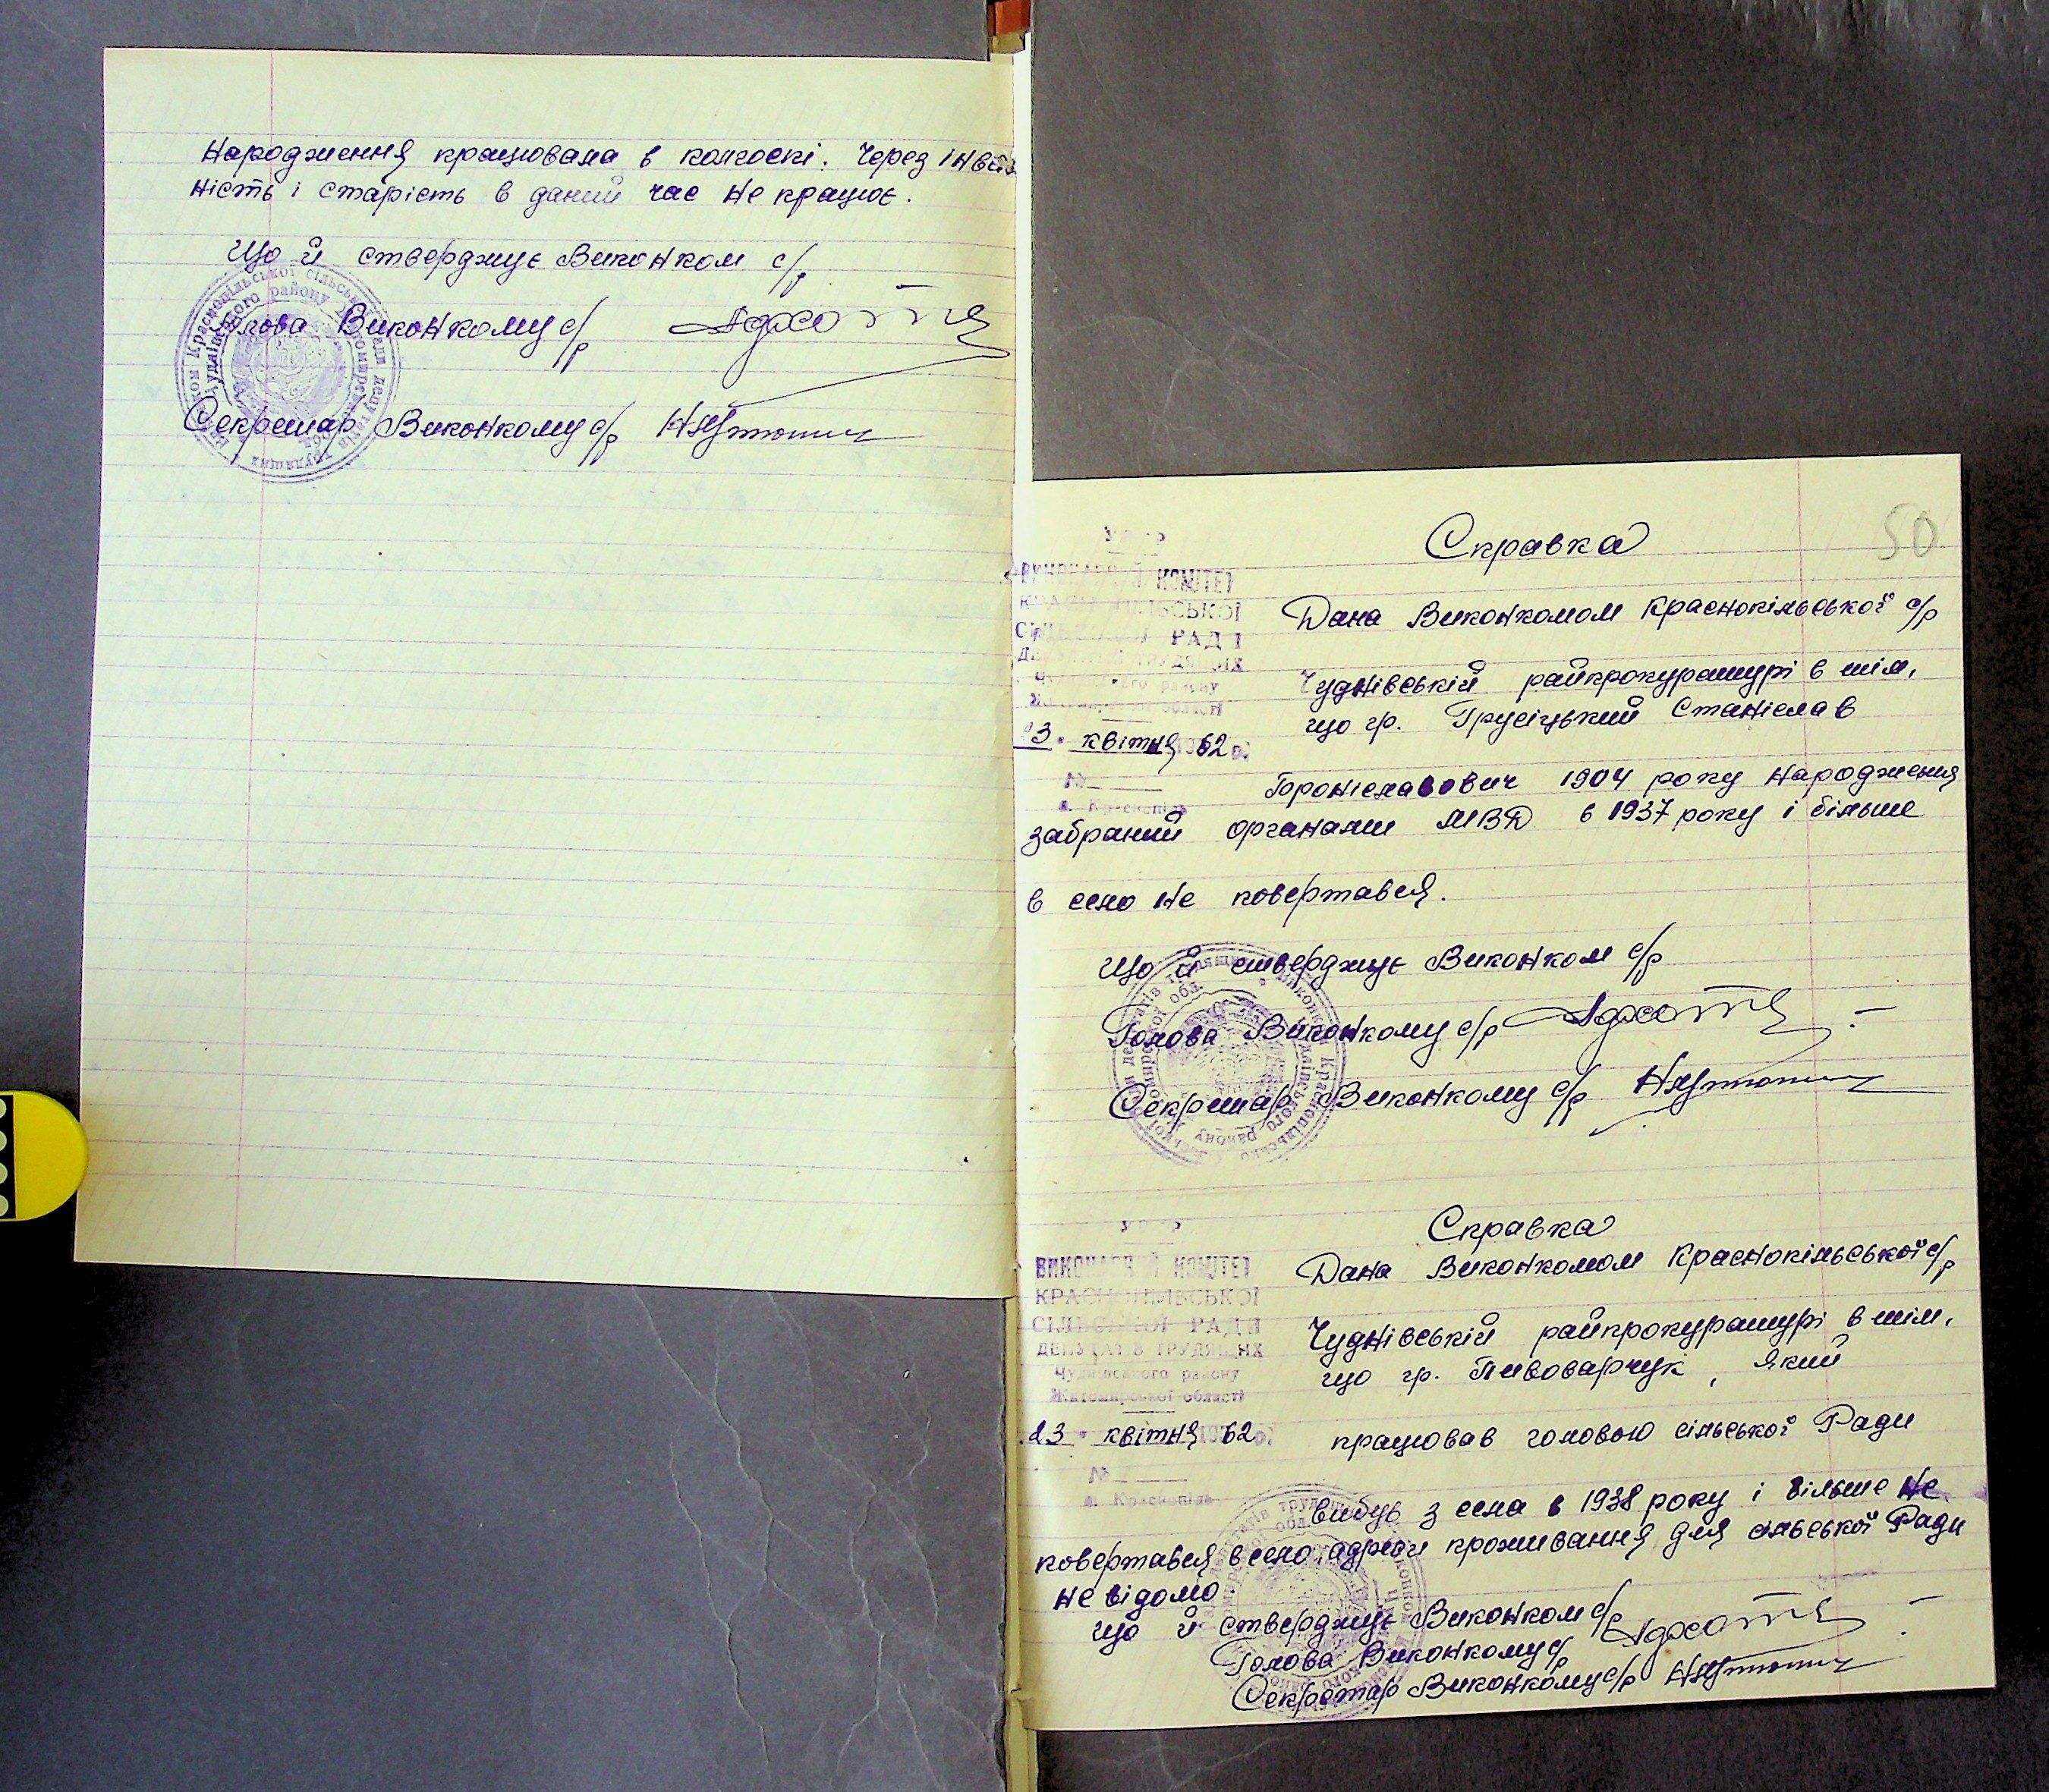 народження працювала в колгоспі. Через інвалід
ність і старість в даний час не працює.
Що й стверджує Виконком с/р
Голова Виконкому с/р
Секретар Виконкому с/р
50
Справка
УРСР
ВИКОНАВЧИЙ КОМІТЕТ
КРАСНОПІЛЬСЬКОЇ
СІЛЬСЬКОЇ РАДИ
ДЕПУТАТІВ ТРУДЯЩИХ
Чуднівського району
Житомирської області
23 квітня 1962 р.
№
с. Краснопіль
Дана Виконкомом Краснопільської с/р
Чуднівській райпрокуратурі в тім,
що гр. Грусіцький Станіслав
Броніславович 1904 року народження
забраний органами МВД в 1937 року і більше
в село не повертався.
Що й стверджує Виконком с/р
Голова Виконкому с/р
Секретар Виконкому с/р
Справка
УРСР
ВИКОНАВЧИЙ КОМІТЕТ
КРАСНОПІЛЬСЬКОЇ
СІЛЬСЬКОЇ РАДИ
ДЕПУТАТІВ ТРУДЯЩИХ
Чуднівського району
Житомирської області
23 квітня 1962 р.
№
с. Краснопіль
Дана Виконкомом Краснопільської с/р
Чуднівській райпрокуратурі в тім,
що гр. Пивоварчук, який
працював головою сільської Ради
вибув з села в 1938 року і більше не
повертався в село, адреси проживання для сільської Ради
не відомо.
Що й стверджує Виконком с/р
Голова Виконкому с/р
Секретар Виконкому с/р